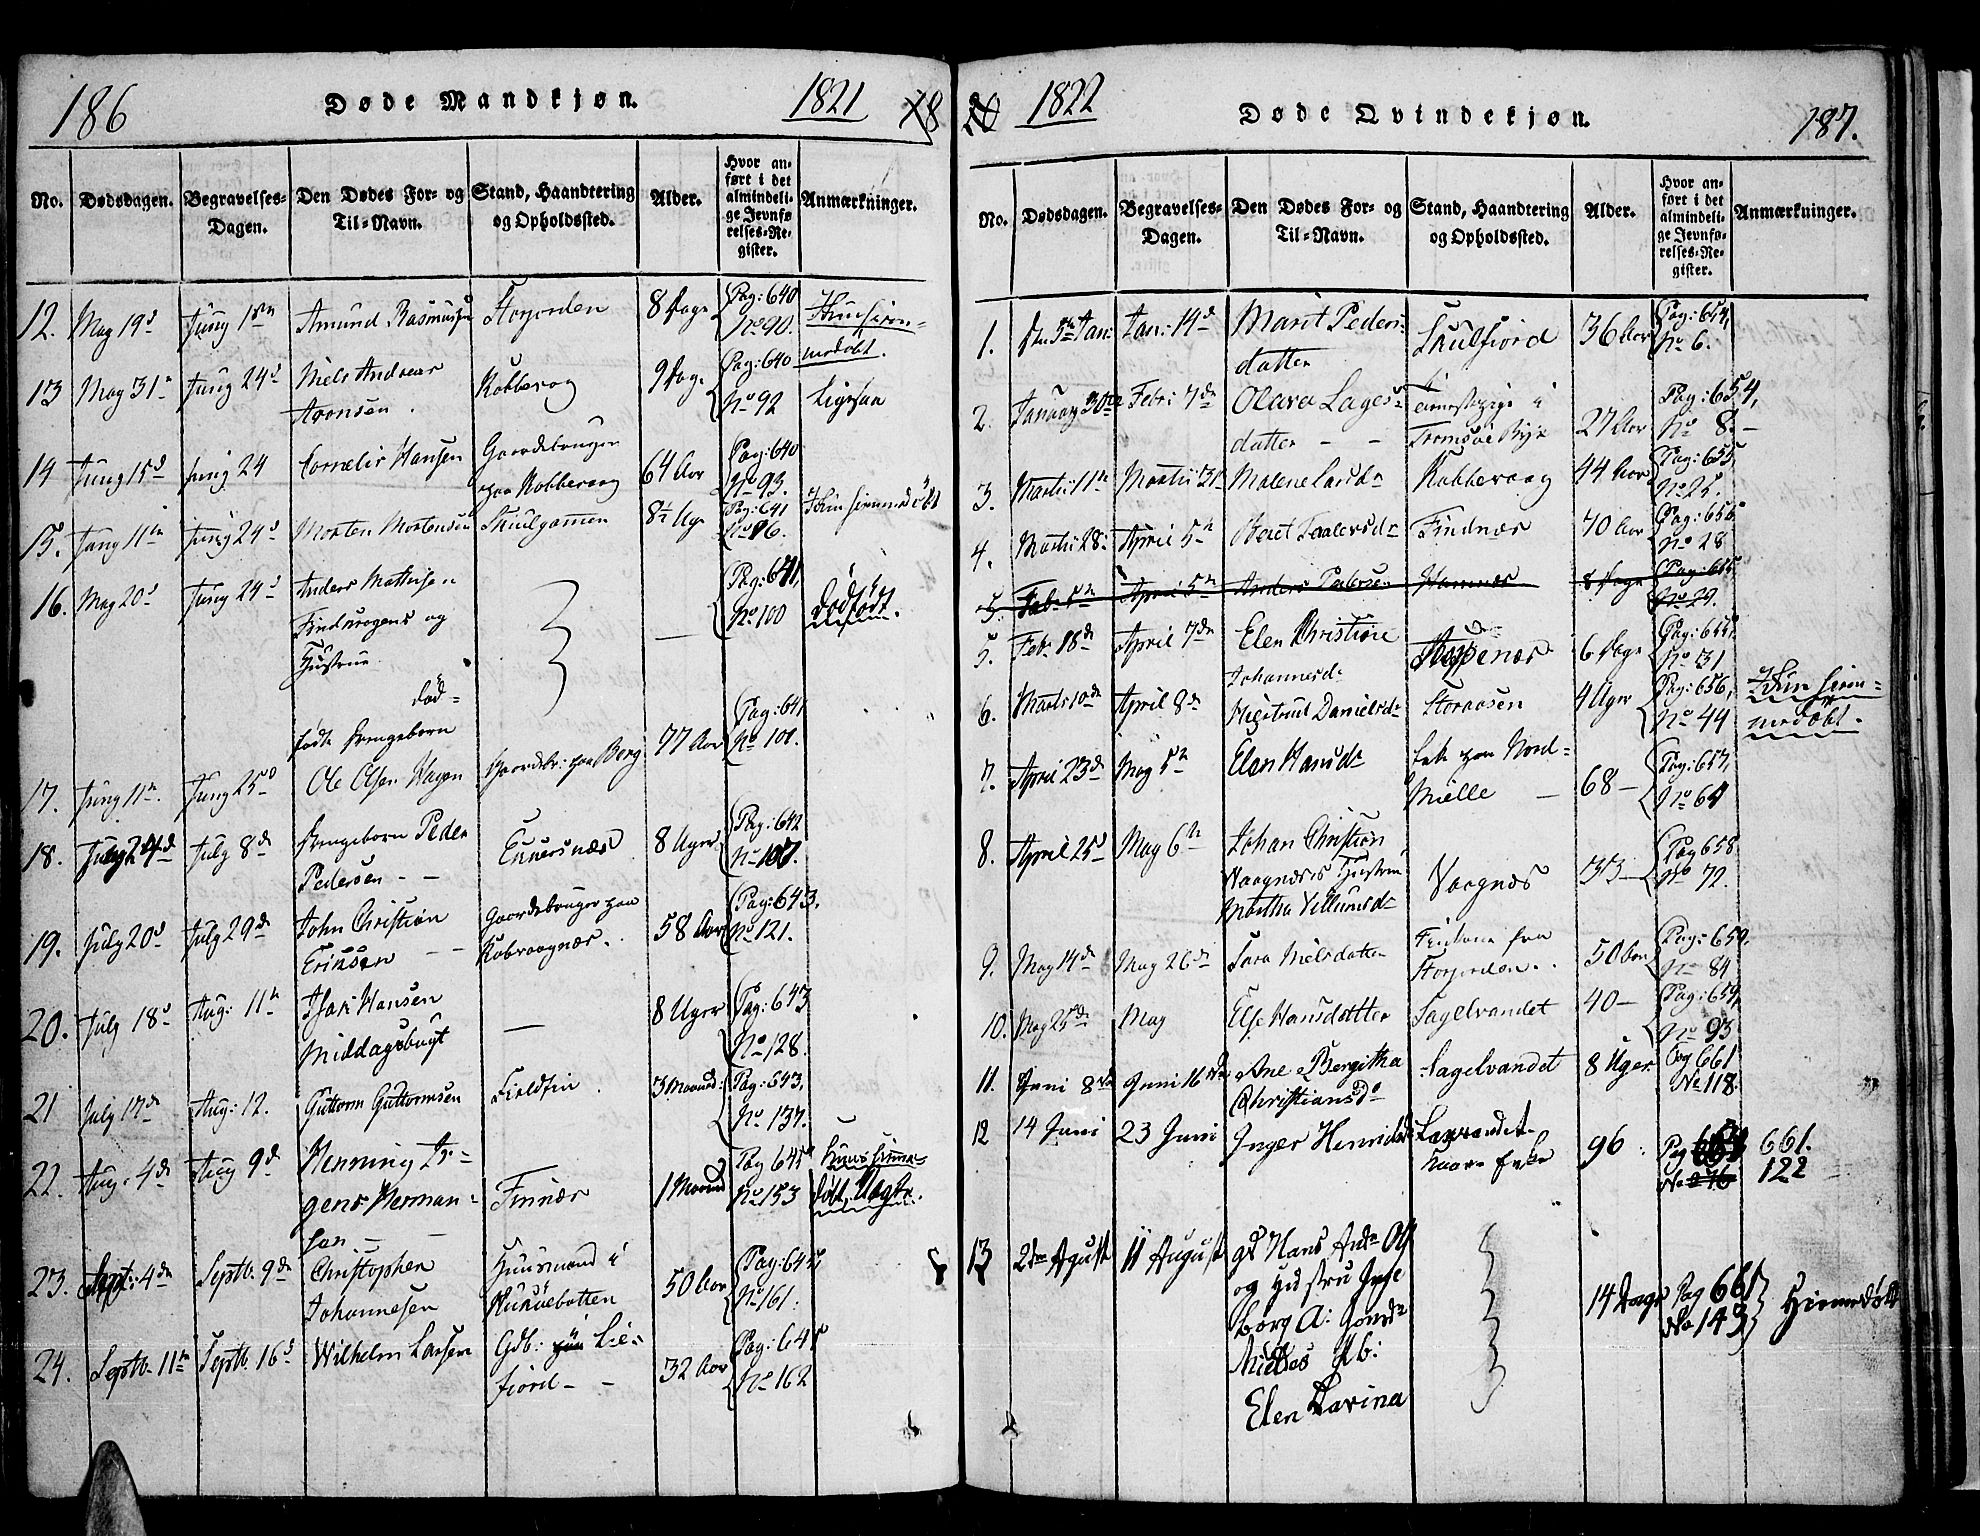 186
Døde Mandkjøn.
1821
No.
Dødsdagen.
Begravelses-
Dagen.
Den Dødes For- og
Til-Navn.
Stand, Haandtering
og Opholdssted.
Alder.
Hvor an-
ført i det
almindeli-
ge Jevnfø
relses-Re-
gister.
Anmærkninger.
12. May 19d Juny 1ste Amund Rasmussen Storjorden 8 Dage Pag: 640
No 90.
13 May 31te Juny 24d Niels Andreas
Aronsen. Kobbevaag 9 Dage Pag: 640
No 92 Ligesaa
14 Juny 15d Juny 24 Cornelis Hansen Gaardsbruger
paa Kobbevaag 64 Aar Pag: 640
No 93.
15. Juny 11te Juny 24d Morten Mortensen Skulgammen 8½ Uge Pag: 641
No 96. Hiemmedøbt
16. May 20d Juny 24d Anders Mathisen
Findkrogens og
Hustrue
død-
fødte Drengebarn — Pag: 641,
No 100 Dødfødt.
17. Juny 11te Juny 25d Ole Olsen Hagen Gaardbr: paa Berg 77 Aar Pag: 641
No 101.
18. July 24d July 8d Drengebarn Peder
Pedersen Einersnæs 8 Uger Pag: 642
No 107.
19. July 20d July 29de John Christian
Eriksen Gaardsbruger paa
Kobvaagnæs. 58 Aar Pag: 643.
No 121.
20. July 18d Aug: 11te Isak Hansen
Middagsbugt — 8 Uger Pag: 643
No 128.
21 July 17de Aug: 12. Guttorm Guttormsen Fieldfin. 3 Maaned: Pag: 643.
No 137.
22. Aug. 4de Aug 9de Henning Ir-
gens Herman-
sen Finnæs 1 Maaned Pag 645
No 153
23. Sept: 4de Septb. 9de Christopher
Johannesen Huusmand i
50 Aar Pag: 645,
No 161.
24. Septb. 11te Septb. 16d Wilhelm Larsen Gdb: Lie-
fiord 32 Aar Pag: 645
No 162
1822
Døde Qvindekjøn.
187.
No.
Dødsdagen.
Begravelses-
Dagen.
Den Dødes For- og
Til-Navn.
Stand, Haandtering
og Opholdssted.
Alder.
Hvor an-
ført i det
almindeli-
ge Jevnfø-
relses-Re-
gister.
Anmærkninger.
1. Den 5te Jan: Jan: 14d Marit Peders-
datter Skulfiord 36 Aar Pag: 654,
No 6.
2. January 30te Febr: 7de Olava Lages-
datter Tieenestepige i
Tromsøe Bye 27 Aar Pag: 654,
No 8.
3. Martii 11te Martii 31te Malene Larsd. Kobbevaag 44 Aar Pag: 655,
No 25.
4. Martii 28. April 5te Beret Peders d. Findnæs 70 Aar Pag: 655
No 28
5. Feb. 5te April 5te Anders Pedersen Hamnæs 8 Dage Pag: 655
No 29.
5. Feb. 18de April 7de Elen Christine
Johannesd. Reppenæs 6 Dage Pag: 655,
No 31
6. Marts 10de April 8de Danielsd. Storaasen 4 Uger Pag: 656,
No 44 Hiem-
medøbt.
7. April 23de May 5te Elen Hansd. Enke paa Nord-
Mielle 68 Pag: 657,
No 64
8. April 25d May 6te Johan Christian
Vaagnæses Hustrue
Martha Villumsd. Vaagnæs 33 Pag 658
No 72.
9. May 14de May 26de Sara Nielsdatter Finkone fra
Storjorden. 50 Aar Pag: 659.
No 84
10. May 25de May Else Hansdatter Sagelvandet 40 Pag: 659,
No 93
11. Juni 8de Juni 16de Ane Bergitha
Christiansd. Sagelvandet 8 Uger Pag 661
No 118.
12 14 Juni 23 Juni Inger Henrichsd. 96 Pag 661.
No 122
13 2den Agust 11 August Hans And. Ols
og Hustru Inge
borg A:
Pb:
Elen Karina 14 Dage Pag 661
No 143 Hiemedøbt